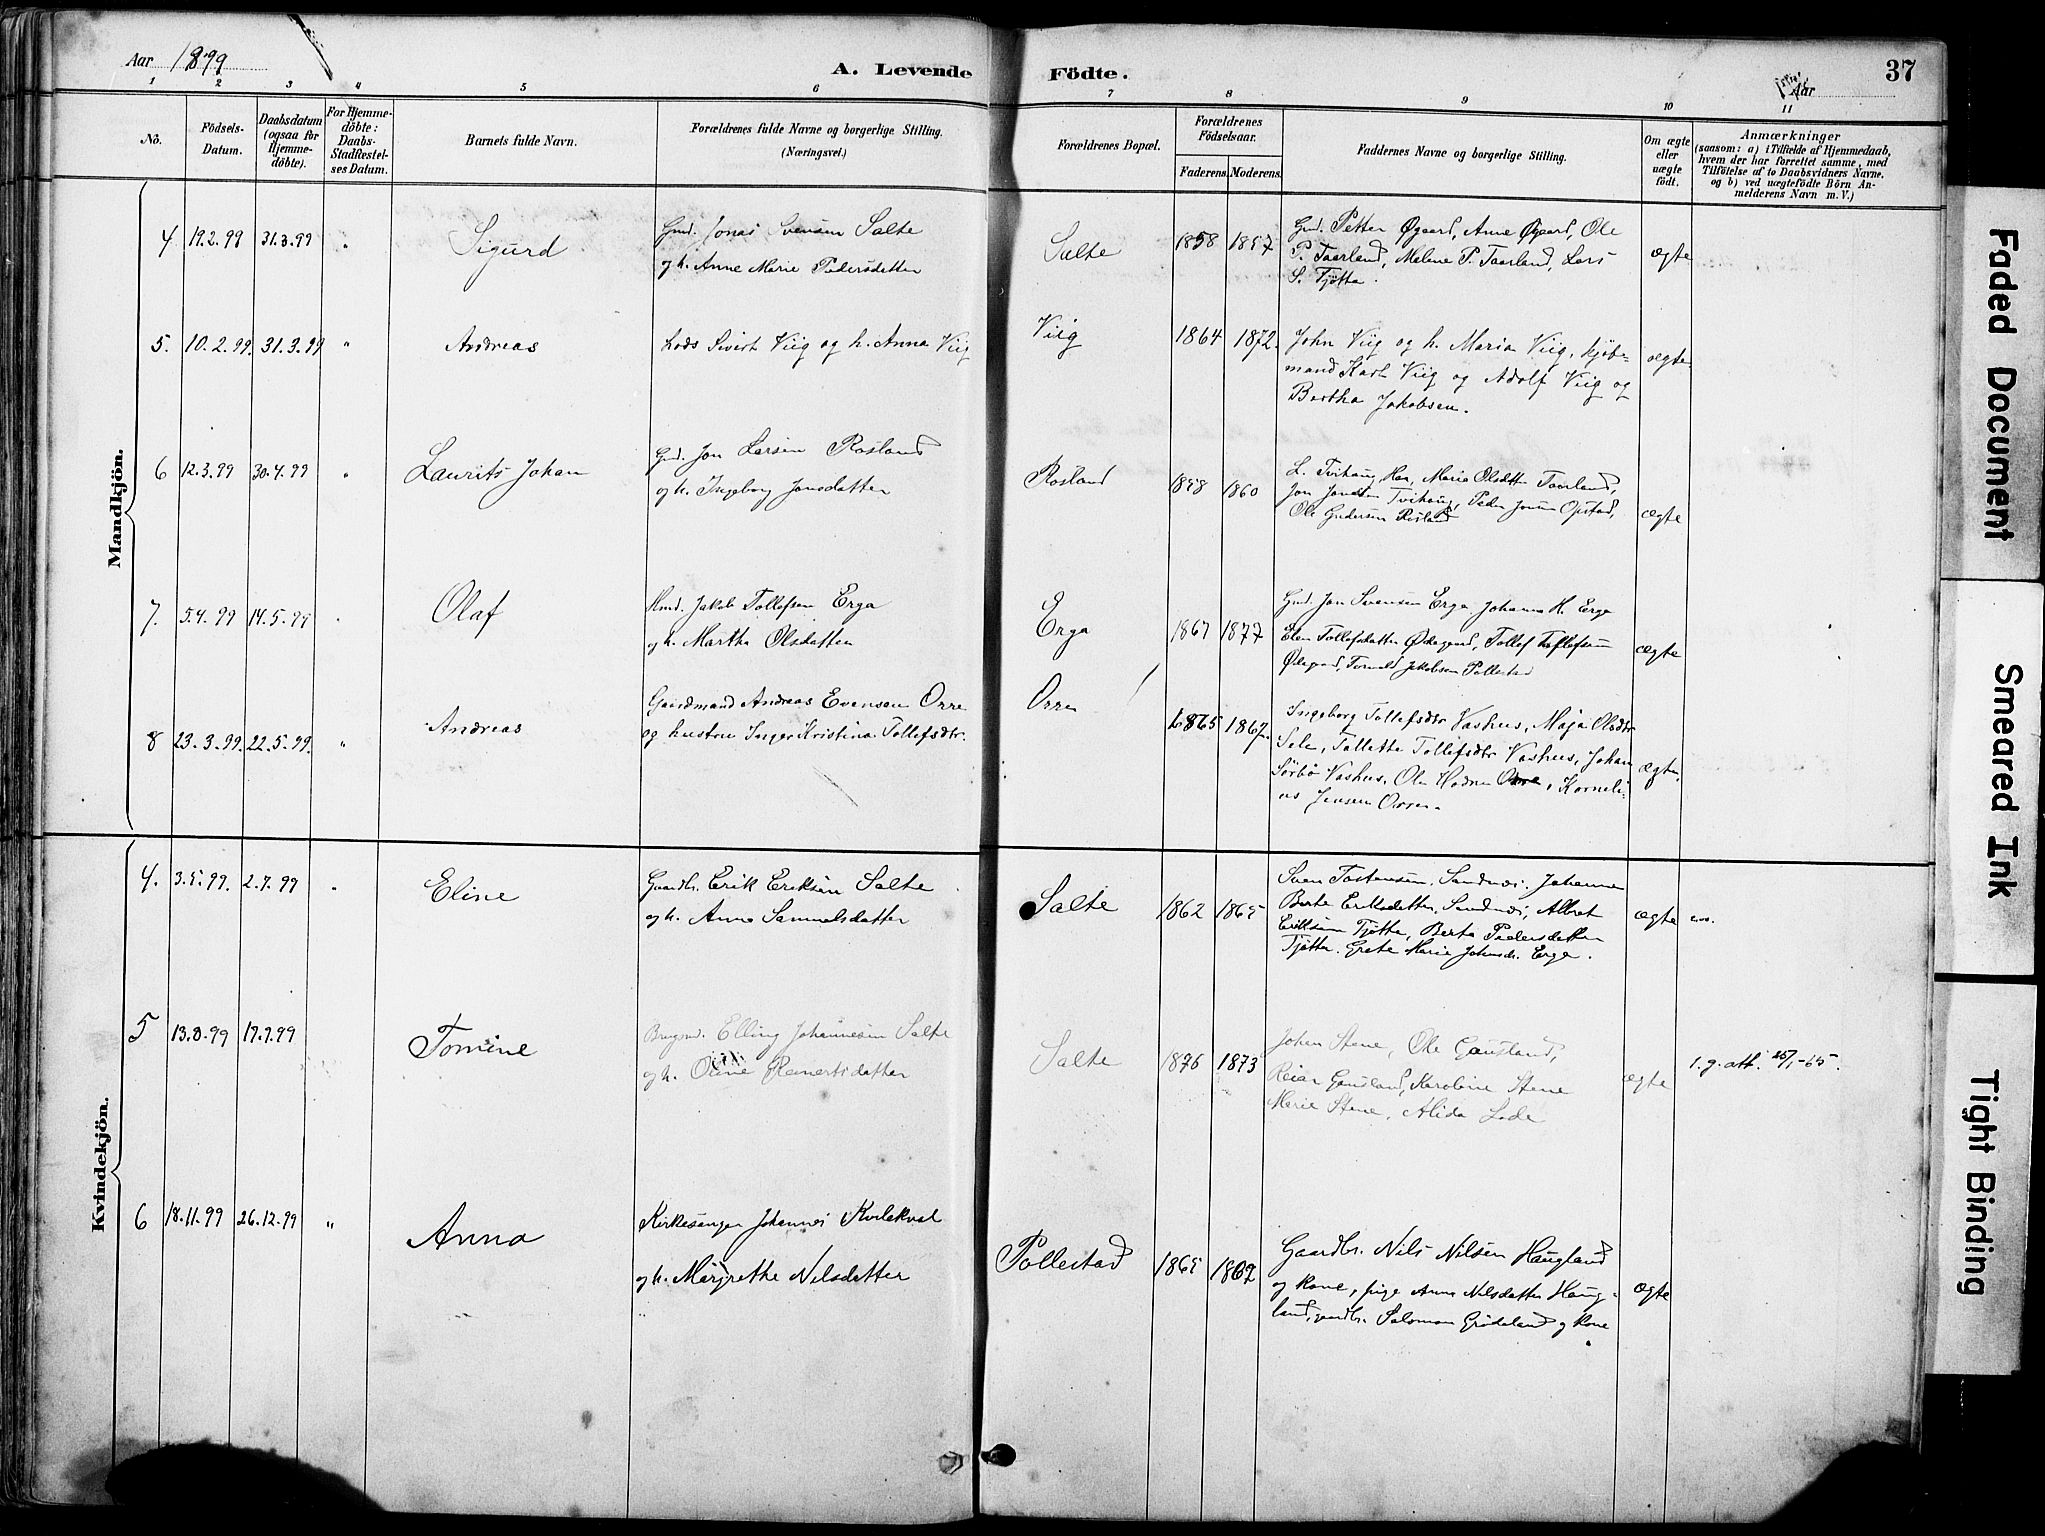 Aar 1899
A. Levende Födte.
Aar
37
1 2 3 4 5 6 7 8 9 10 11
No.
Födsels-
Datum.
Daabsdatum
(ogsaa for
Hjemme-
döbte).
For Hjemme-
döbte:
Daabs-
Stadfæstel-
ses Datum.
Barnets fulde Navn.
Forældrenes fulde Navne og borgerlige Stilling.
(Næringsvei.)
Forældrenes Bopæl.
Forældrenes
Födselsaar.
Faderens. Moderens.
Faddernes Navne og borgerlige Stilling.
Om ægte
eller
uægte
födt.
Anmærkninger
(saasom: a) i Tilfælde af Hjemmedaab,
hvem der har forrettet samme, med
Tilföielse af to Daabsvidners Navne.
og b) ved uægtefödte Börn An-
melderens Navn m. V.)
Mandkjön.
4 19.2.99 31.3.99 " Sigurd
Gmd. Jonas Svensen Salte
og h. Anne Marie Pedersdatter
Salte 1858 1857
Gmd. Petter Øgaard, Anne Øgaard, Ole
P. Taarland, Malene P. Taarland, Lars
S. Tjötta.
ægte
5. 10.2.99. 31.3.99 " Andreas
Lods Sivert Viig og h. Anna Viig
Viig 1864 1872.
John Viig og h. Maria Viig, kjöb-
mand Karl Viig og Adolf Viig og
Bertha Jakobsen.
ægte
6 12.3.99 30.4.99 " Laurits Johan
Gmd. Jon Larsen Rosland
og h. Ingeborg Jonsdatter
Rosland 1858 1860
L. Tvihaug Haa, Maria Olsdatter Taarland,
Jon Tvihaug, Peder Opstad,
Ole Gudersen Rosland
ægte
7. 5.4.99 14.5.99 Olaf
Hmd. Jakob Tollefsen Erga
og h. Martha Olsdatter
Erga 1867 1877
Gmd. Jon Svensen Erga, Johanna H. Erga
Elen Tollefsdatter Ødegaard, Tollef Tollefsen
Ødegaard, Jakobsen Pollestad
ægte
8 23.3.99. 22.5.99. " Andreas
Gaardmand Andreas Evensen Orre
og hustru Inger Kristina Tollefsdtr.
Orre 1865 1867.
Ingeborg Tollefsdtr Vashus, Maja Olsdtr
Sele, Tallette Tollefsdtr Vashus, Johan
Sörbö Vashus, Ole Hodne Orre, Korneli-
us Jensen Orre.
ægte.
Kvindekjön.
4. 3.5.99. 2.7.99 " Eline
Gaardbr. Erik Eriksen Salte
og h. Anna Samuelsdatter
Salte 1862 1865
Sven Tostensen, Sandnæs, Johanna
Berte Eriksdatter, Sandnæs, Albret
Eriksen Tjötta, Berta Pedersdatter
Tjötta. Grete Marie Johnsdr. Erga.
ægte
5 13.6.99 17.7.99 Tomine
Brugsmd. Elling Johannesen Salte
og h. Oline Reinertsdatter
Salte 1876 1873
Johan Stene, Ole Gausland,
Reiar Gausland, Karoline Stene
Marie Stene, Alida Lode
ægte
1. g. att. 25/1-65.
6 18.11.99 26.12.99 " Anna
Kirkesanger Johannes Kvilekval
og h. Margrethe Nilsdatter
Pollestad 1865 1862
Gaardbr. Nils Nilsen Haugland
og kone, pige Anna Nilsdatter Haug-
land, gaardbr. Salomon Grödeland og kone
ægte
Faded Document
Smeared Ink
Tight Binding